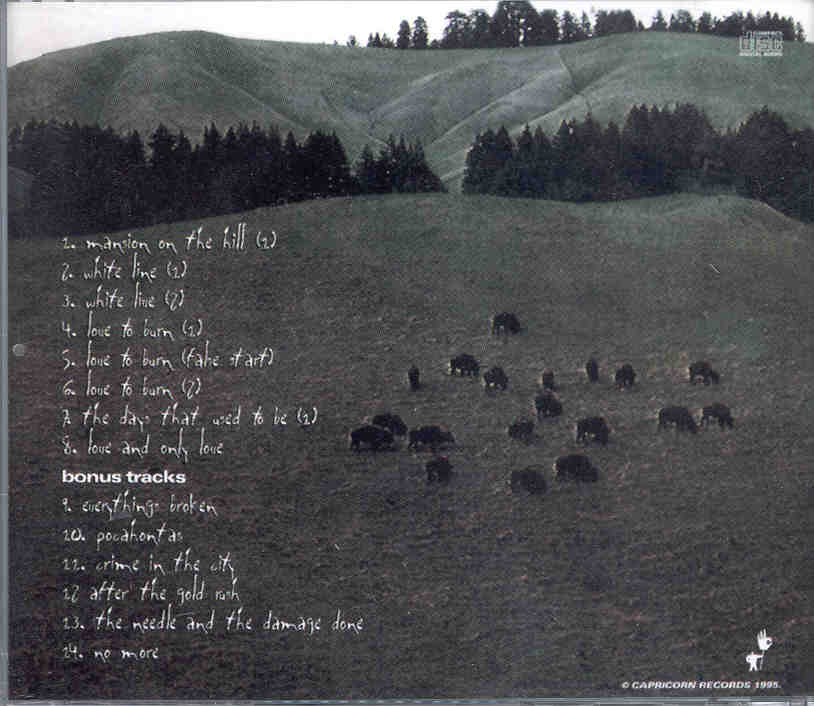 COMPACT
disc
DIGITAL AUDIO
1. mansion on the hill (1)
2. white line (1)
3. white line (2)
4. love to burn (1)
5. love to burn (false start)
6. love to burn (2)
7. the days that used to be (1)
8. love and only love
bonus tracks
9. everythings broken
10. pocahontas
11. crime in the city
12 after the gold rush
13. the needle and the damage done
14. no more
© CAPRICORN RECORDS 1995.